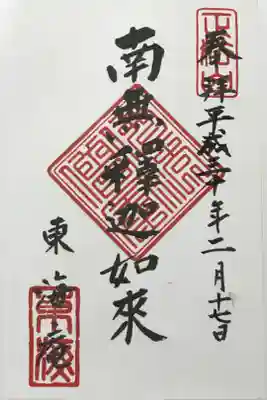 奉拝 平成三十年二月十七日
南無釋迦如來
東海庵